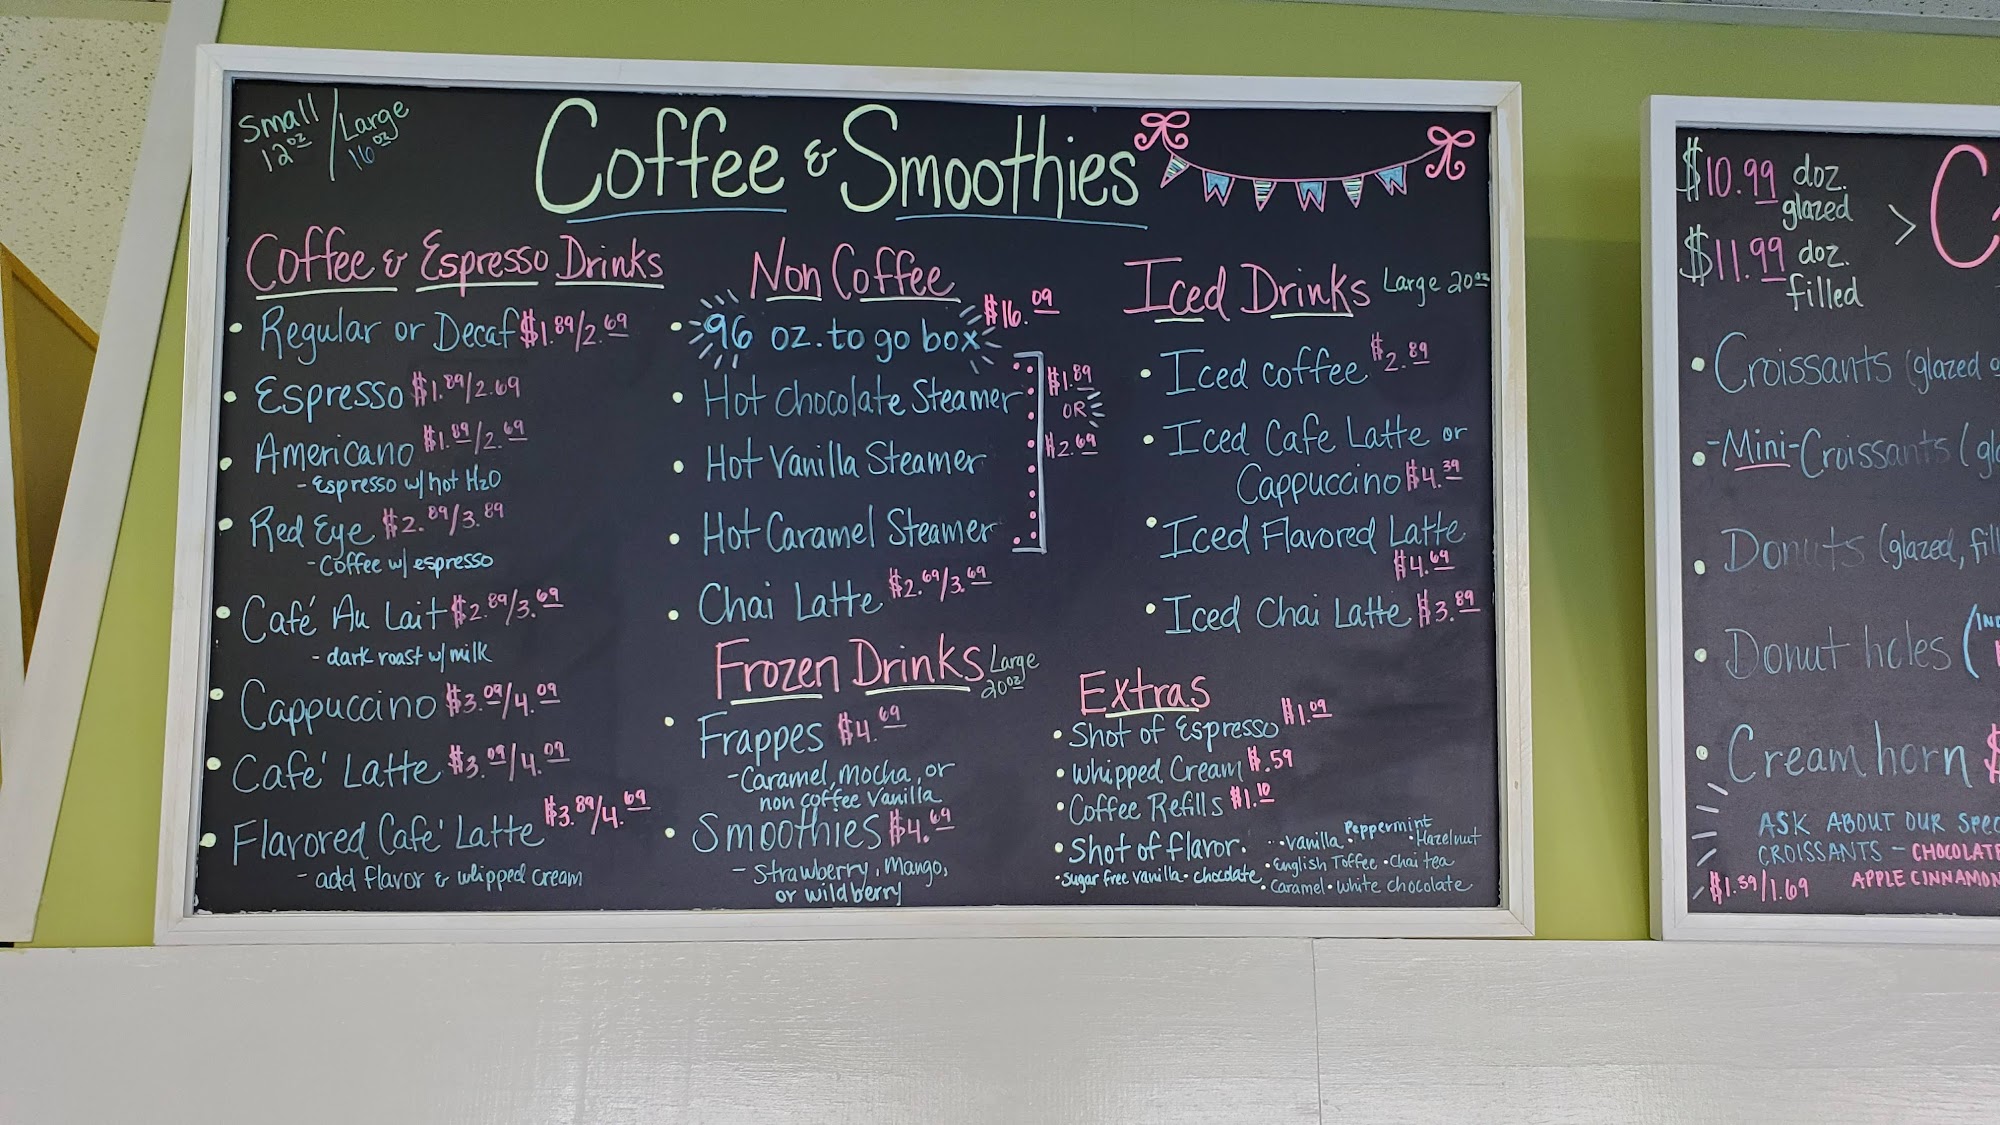 Small 12oz / Large 16oz
Coffee & Smoothies
Coffee & Espresso Drinks
• Regular or Decaf $1.89/2.69
• Espresso $1.89/2.69
• Americano $1.89/2.69
- Espresso w/ hot H2O
• Red Eye $2.89/3.89
- Coffee w/ espresso
• Café Au Lait $2.89/3.69
- dark roast w/ milk
• Cappuccino $3.09/4.09
• Café Latte $3.09/4.09
• Flavored Café Latte $3.89/4.69
- add flavor & whipped cream
Non Coffee
• 96 oz. to go box $16.09
• Hot Chocolate Steamer
• Hot Vanilla Steamer
• Hot Caramel Steamer
$1.89
OR
$2.69
• Chai Latte $2.69/3.69
Frozen Drinks Large 20oz
• Frappes $4.69
- Caramel, mocha, or
non coffee vanilla
• Smoothies $4.69
- Strawberry, Mango,
or wild berry
Iced Drinks Large 20oz
• Iced coffee $2.89
• Iced Cafe Latte or
Cappuccino $4.39
• Iced Flavored Latte
$4.69
• Iced Chai Latte $3.89
Extras
• Shot of Espresso $1.09
• Whipped Cream $.59
• Coffee Refills $1.10
• Shot of flavor. • vanilla • Peppermint • Hazelnut
• English Toffee • Chai tea
• Sugar free vanilla • chocolate • Caramel • white chocolate
$10.99 doz.
glazed
$11.99 doz.
filled
>
C
• Croissants (glazed
• -Mini-Croissants (
• Donuts (glazed,
• Donut holes (
• Cream horn $
ASK ABOUT OUR
CROISSANTS - CHOCOLATE
$1.39/1.69 APPLE CINNAMON